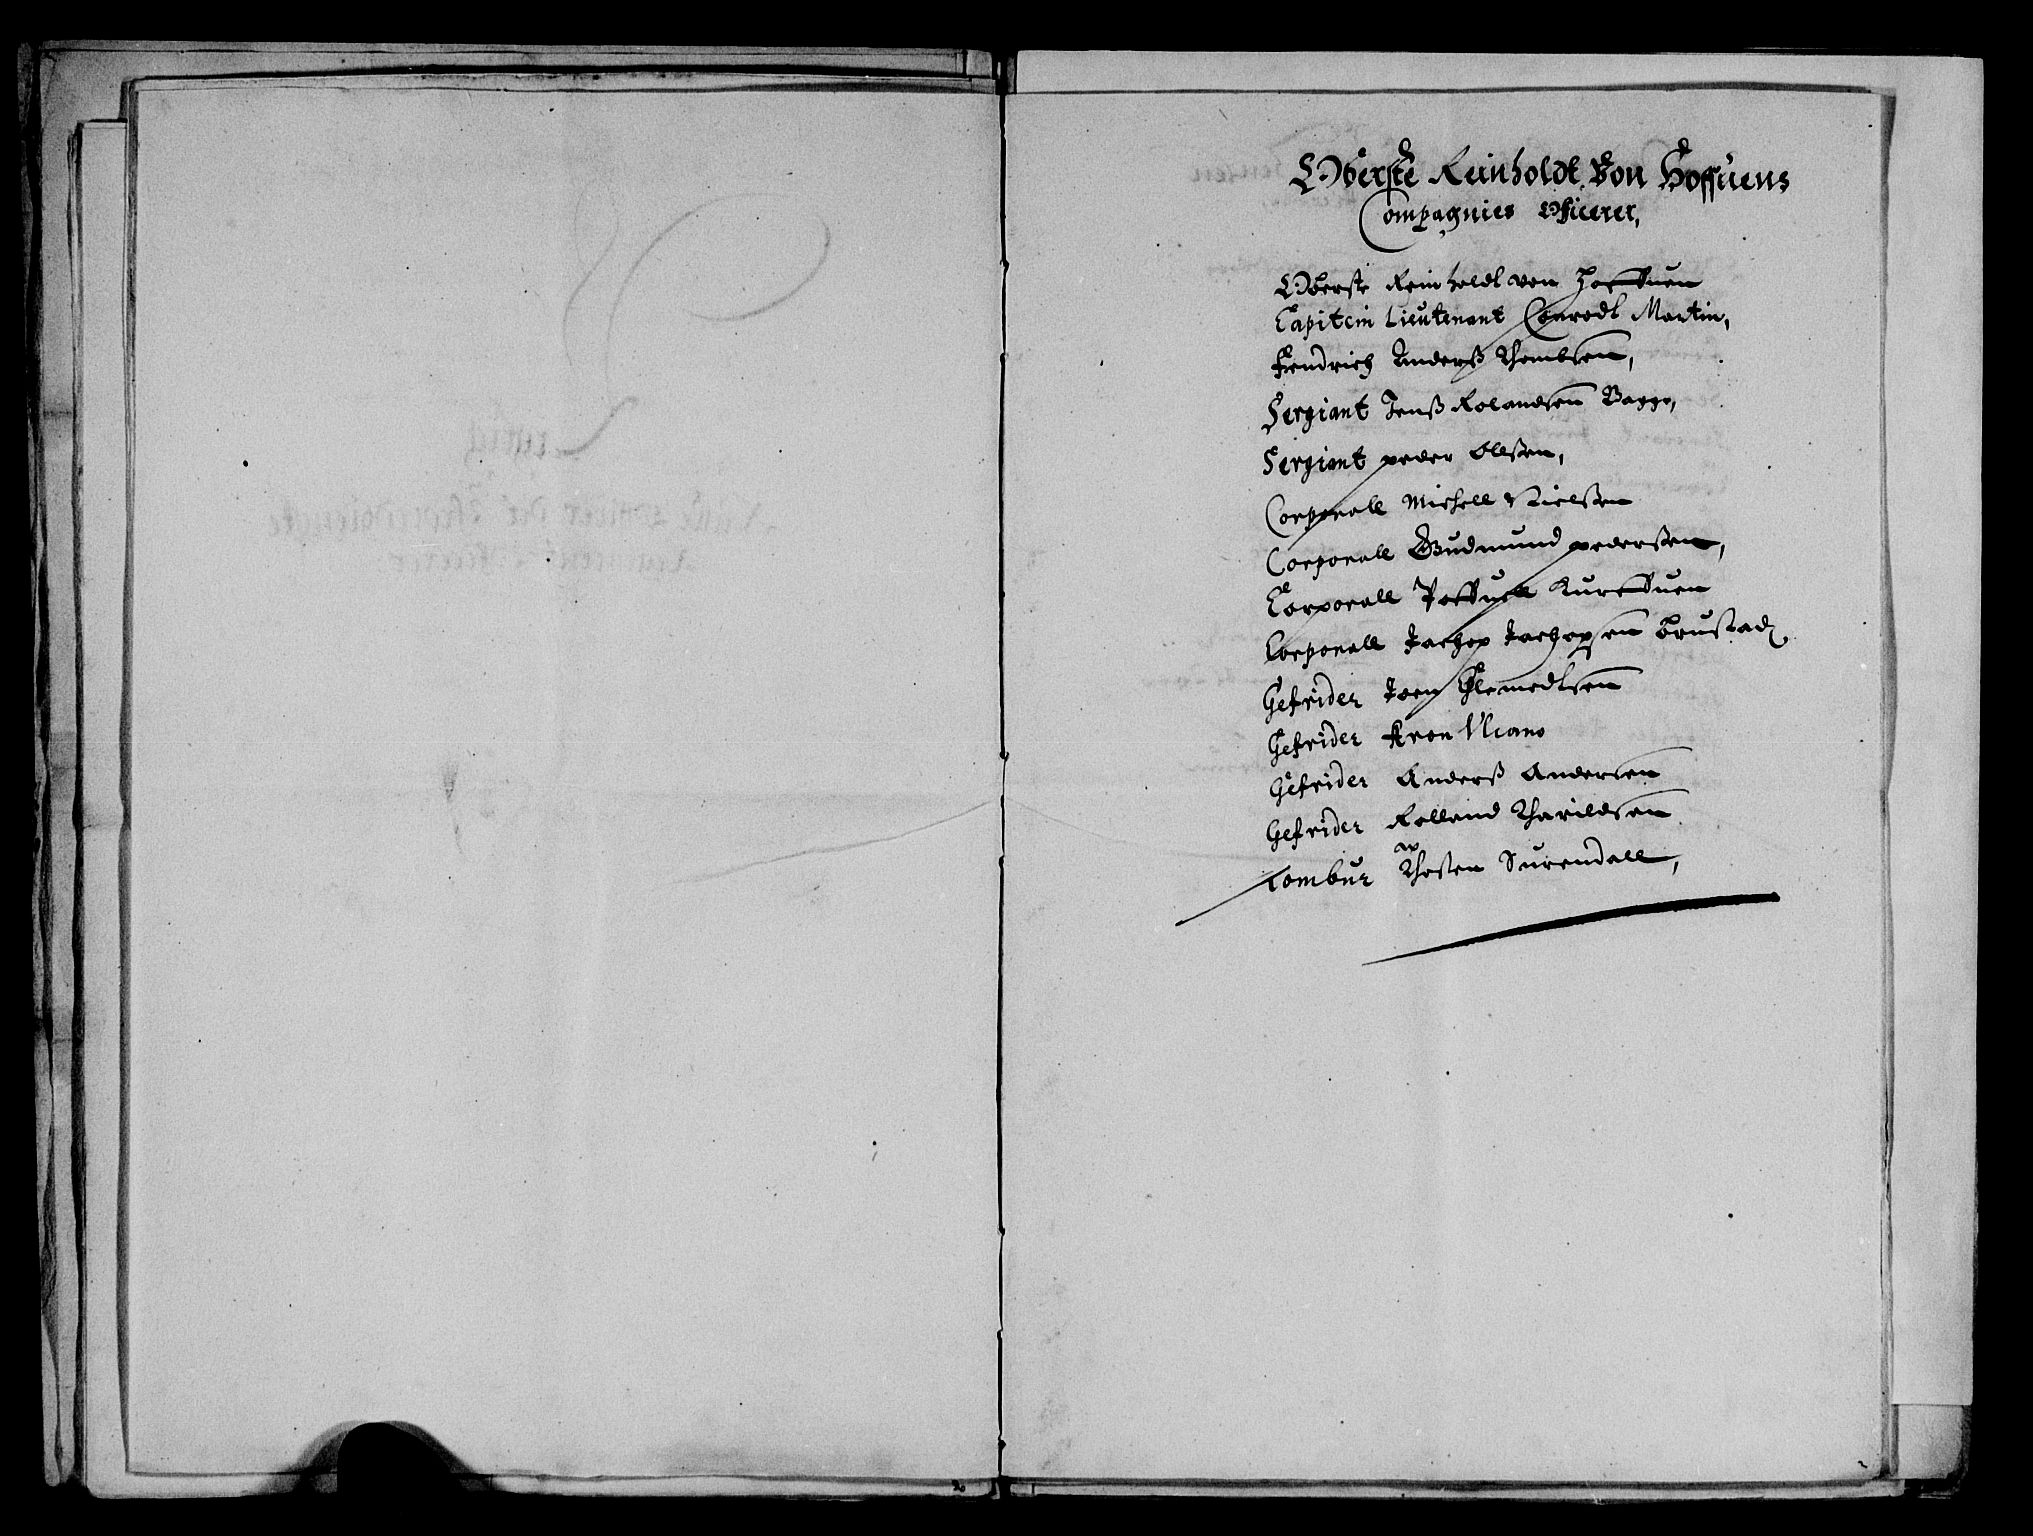 Oberste Reinholdt Von Hoffuens
Compagnies Officerer,
Oberste Reinholdt von Hoffuen
Capitein Lieutenant Conradt Martin,
Fendrich Anderß Thombsen,
Sergiant Jenß Rolandsen Bagge,
Sergiant peder Olßen,
Corporall Michell Nielßen
Corporall Gudmund pederßen,
Corporall Poffuell Kurffuen
Corporall Jachop Jachopsen Brustad,
Gefrider Joen Clemedtsen
Gefrider Aron
Gefrider Anderß Andersen
Gefrider Rolland Tharildsen
Tombur Thosten av Surendall,